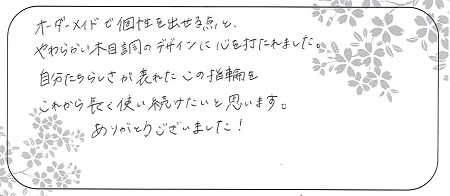 オーダーメイドで個性を出せる点と、
やわらかい木目調のデザインに心を打たれました。
自分たちらしさが表れたこの指輪を
これから長く使い続けたいと思います。
ありがとうございました!